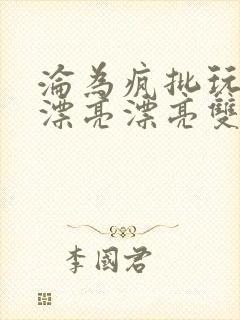 淪為瘋批玩
漂亮漂亮雙
李國君